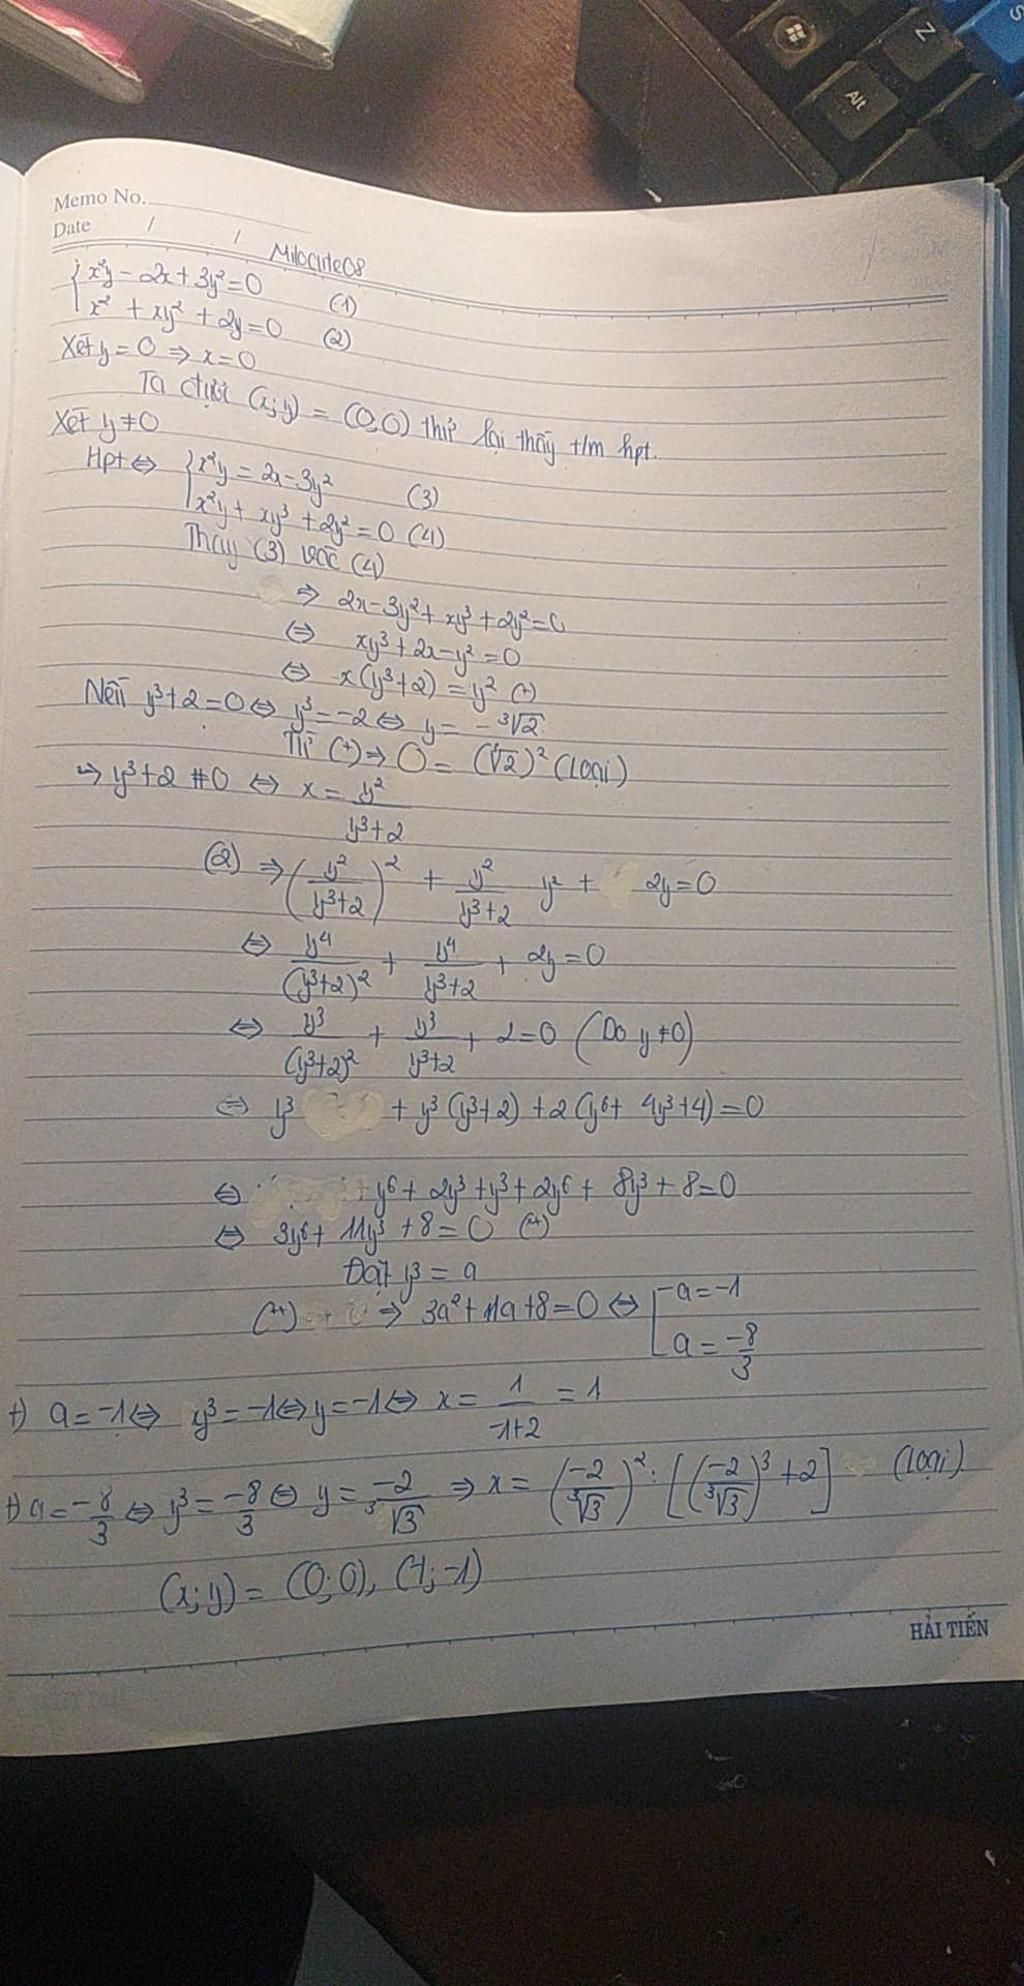 S
Z
Alt
Memo No.
Date / /
Milocute08
{ x²y - 2x + 3y² = 0 (1)
x² + xy² + 2y = 0 (2)
Xét y = 0 ⇒ x = 0
Ta được (x; y) = (0, 0) thử lại thấy t/m hpt.
Xét y ≠ 0
Hpt ⇔ { x²y = 2x - 3y² (3)
x²y + xy³ + 2y² = 0 (4)
Thay (3) vào (4)
⇒ 2x - 3y² + xy³ + 2y² = 0
⇔ xy³ + 2x - y² = 0
⇔ x(y³ + 2) = y² (*)
Nếu y³ + 2 = 0 ⇔ y³ = -2 ⇔ y = -∛2
Từ (*) ⇒ 0 = (∛2)² (Loại)
⇒ y³ + 2 ≠ 0 ⇔ x = y²/(y³ + 2)
(2) ⇒ (y²/(y³ + 2))² + y²/(y³ + 2) y² + 2y = 0
⇔ y⁴/(y³ + 2)² + y⁴/(y³ + 2) + 2y = 0
⇔ y³/(y³ + 2)² + y³/(y³ + 2) + 2 = 0 (Do y ≠ 0)
⇔ y³ + y³(y³ + 2) + 2(y⁶ + 4y³ + 4) = 0
⇔ + y⁶ + 2y³ + y³ + 2y⁶ + 8y³ + 8 = 0
⇔ 3y⁶ + 11y³ + 8 = 0 (**)
Đặt y³ = a
(**) ⇒ 3a² + 11a + 8 = 0 ⇔ [ a = -1
a = -8/3
+) a = -1 ⇔ y³ = -1 ⇔ y = -1 ⇔ x = 1/(-1+2) = 1
+) a = -8/3 ⇔ y³ = -8/3 ⇔ y = -2/∛3 ⇒ x = (-2/∛3)² : [(-2/∛3)³ + 2] (Loại)
(x; y) = (0; 0), (1; -1)
HẢI TIẾN